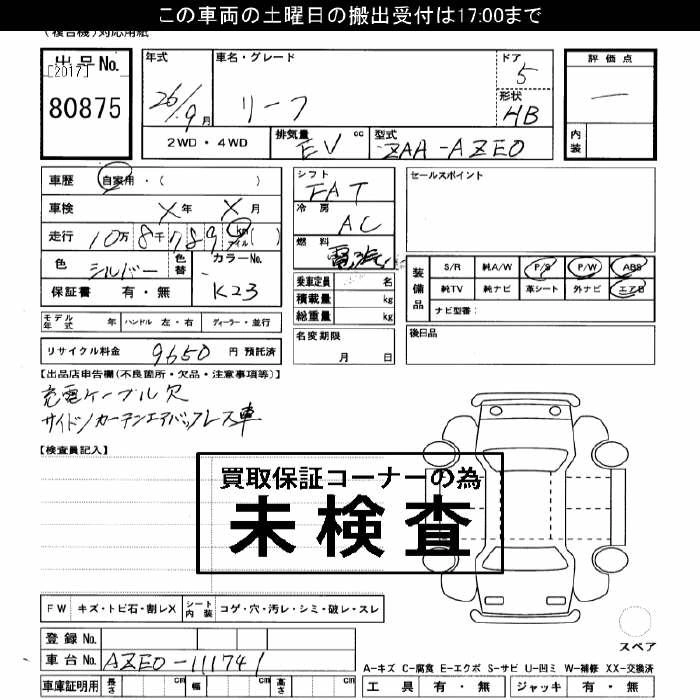 この車両の土曜日の搬出受付は17:00まで
(複合機)対応用紙
出品No.
[2017]
80875
年式
26/9月
車名・グレード
リーフ
ドア
5
形状
HB
2WD・4WD
排気量 EV cc
型式 ZAA-AZE0
評価点
内装
車歴 自家用・( )
車検 X年 X月
走行 10万8千789 km マイル( )
色 シルバー
色替
カラーNo. K23
保証書 有・無
シフト FAT
冷房 AC
燃料 電気
乗車定員 名
積載量 kg
総重量 kg
セールスポイント
装備品
S/R 純A/W P/S P/W ABS
純TV 純ナビ 革シート 外ナビ エアB
ナビ型番:
モデル年式 年 ハンドル 左・右 ディーラー・並行
名変期限
月 日
後日品
リサイクル料金 9650 円 預託済
【出品店申告欄(不良箇所・欠品・注意事項等)】
充電ケーブル欠
サイド/カーテンエアバックレス車
【検査員記入】
買取保証コーナーの為
未検査
FW キズ・トビ石・割レX シート内装 コゲ・穴・汚レ・シミ・破レ・スレ
登録No.
車台No. AZE0-111741
車庫証明用 長さ cm 幅 cm 高さ cm
スペア
A-キズ C-腐食 E-エクボ S-サビ U-凹ミ W-補修 XX-交換済
工具 有・無 ジャッキ 有・無